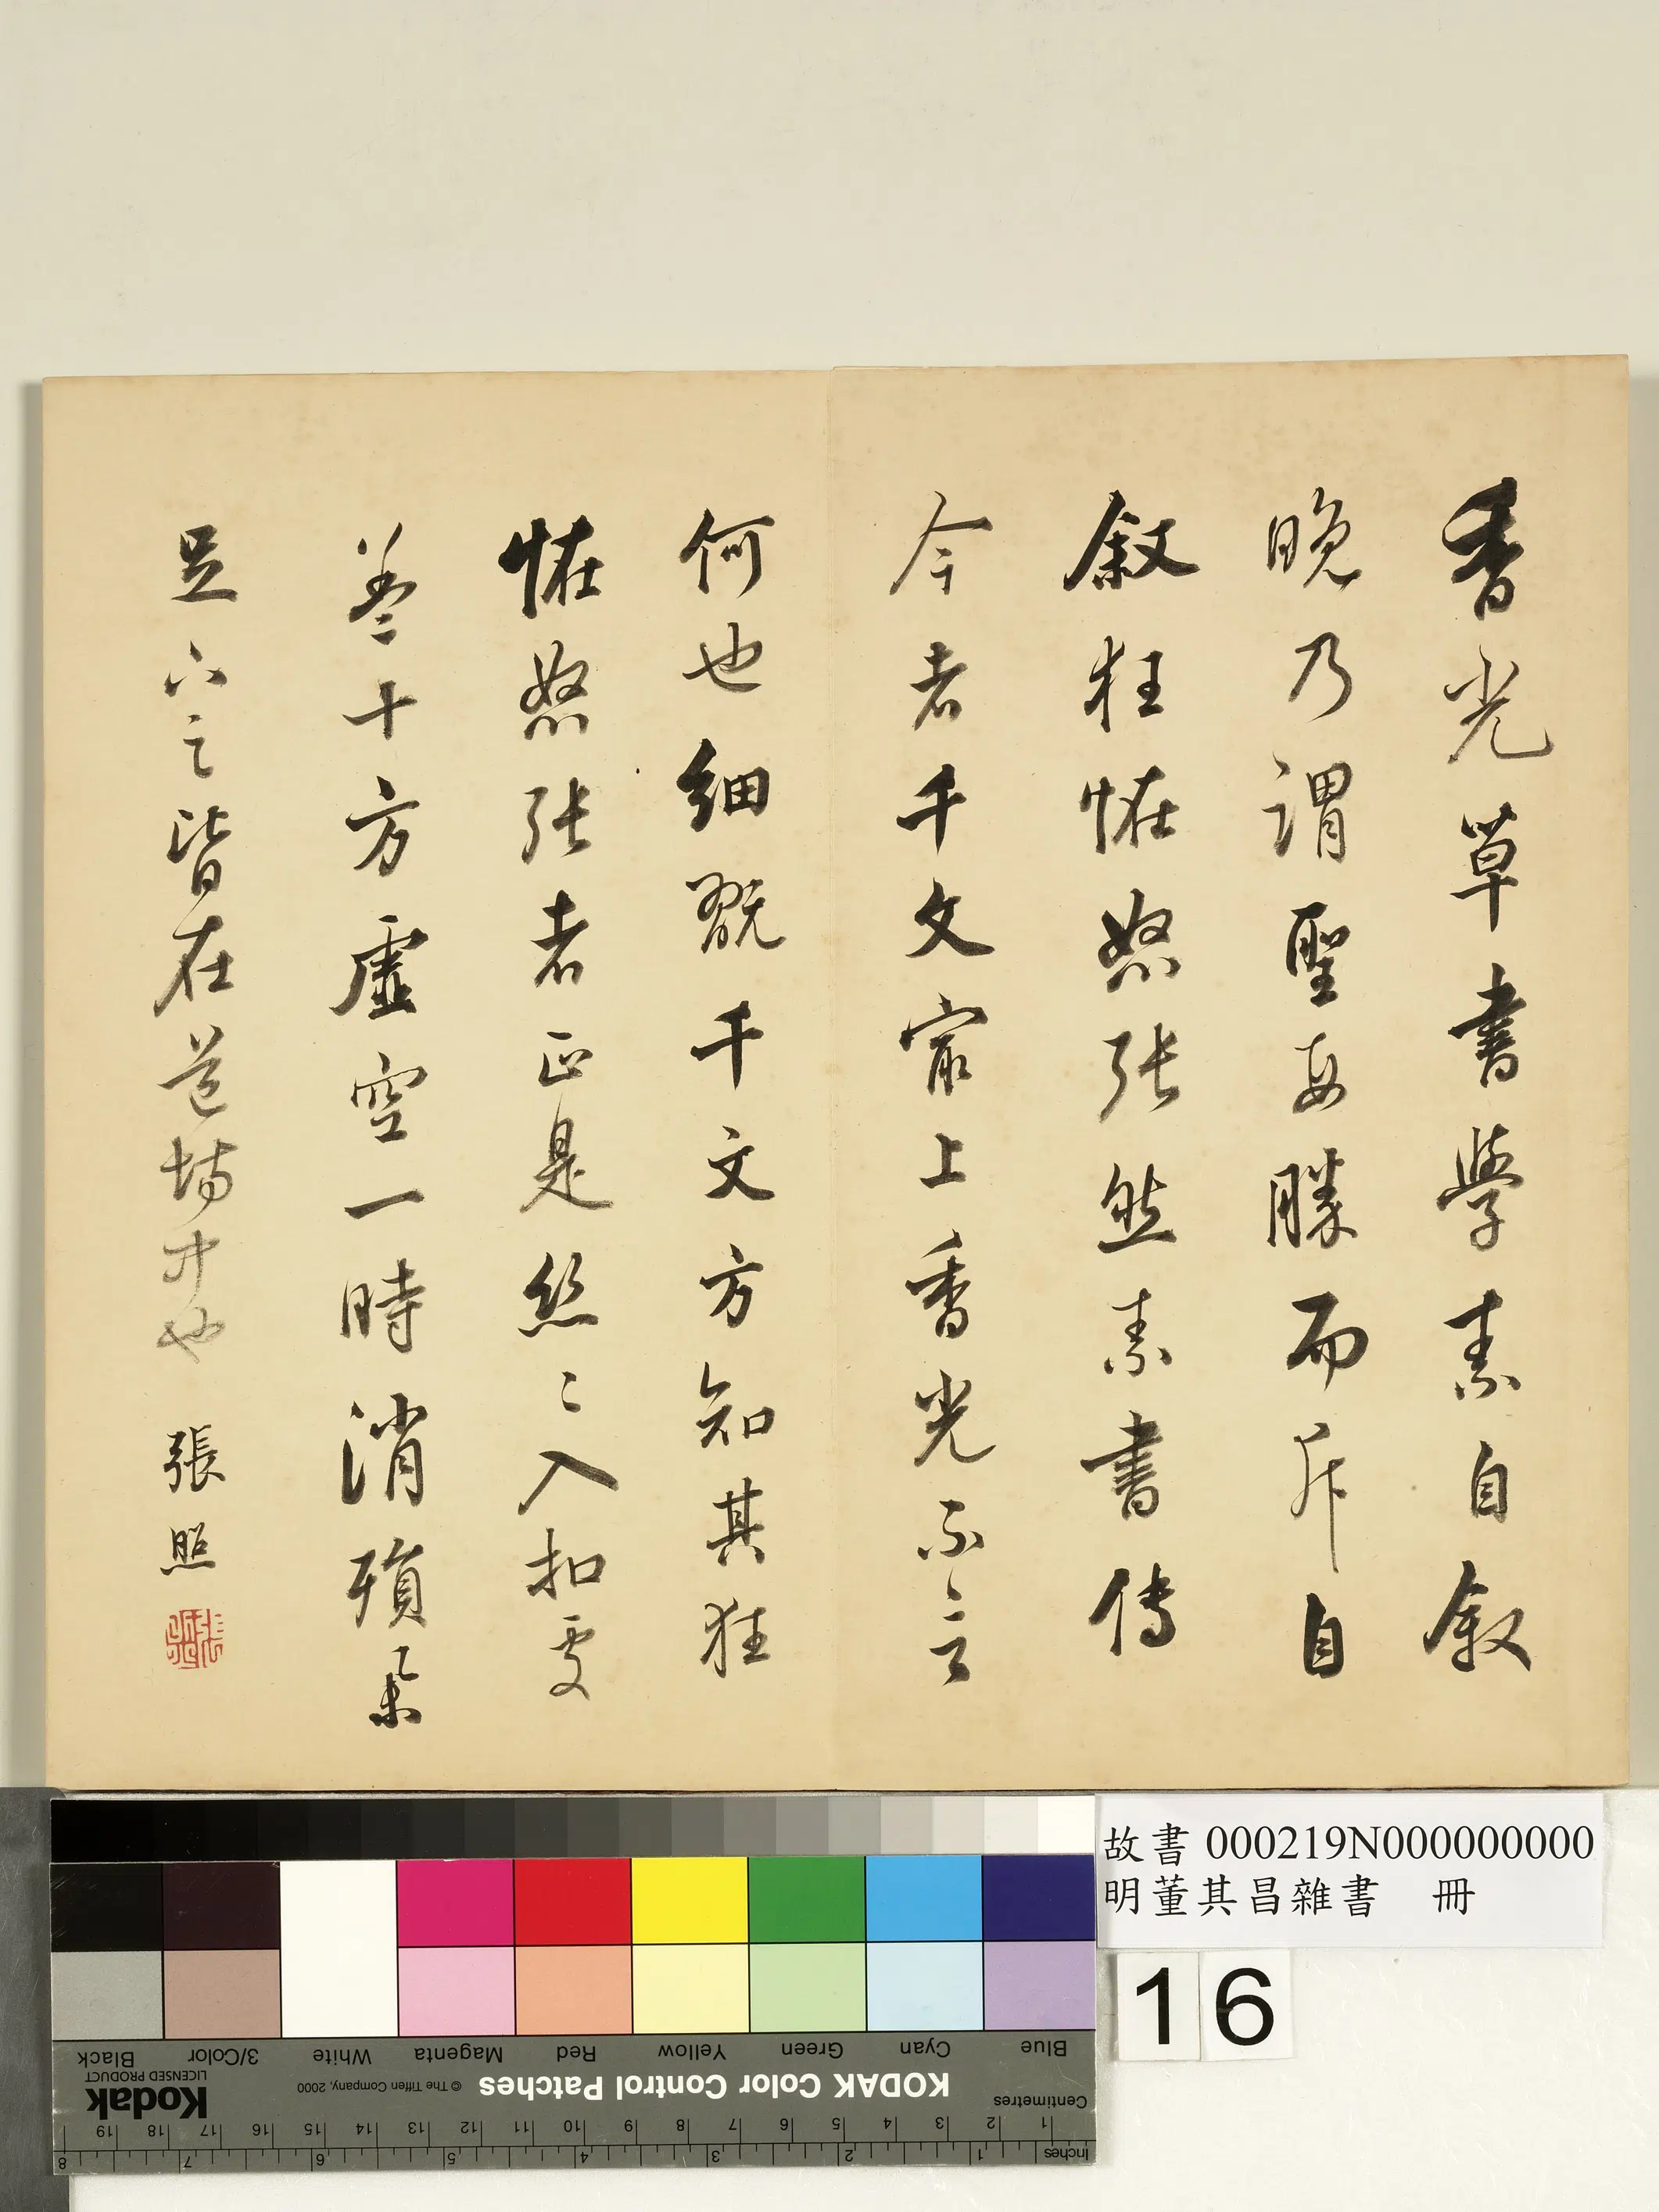 香光草書學素自敘
晚乃謂聖母勝而斥自
敘狂恠怒張然素書傳
今者千文寂上香光不言
何也細翫千文方知其狂
恠怒張者正是絲〻入扣處
葢十方虛空一時消殞朶
足下足皆在道場中也
張照
故書 000219N000000000
明董其昌雜書 冊
16
KODAK Color Control Patches
© The Tiffen Company, 2000
Kodak
LICENSED PRODUCT
Blue Cyan Green Yellow Red Magenta White 3/Color Black
Centimetres 1 2 3 4 5 6 7 8 9 10 11 12 13 14 15 16 17 18 19
Inches 1 2 3 4 5 6 7 8